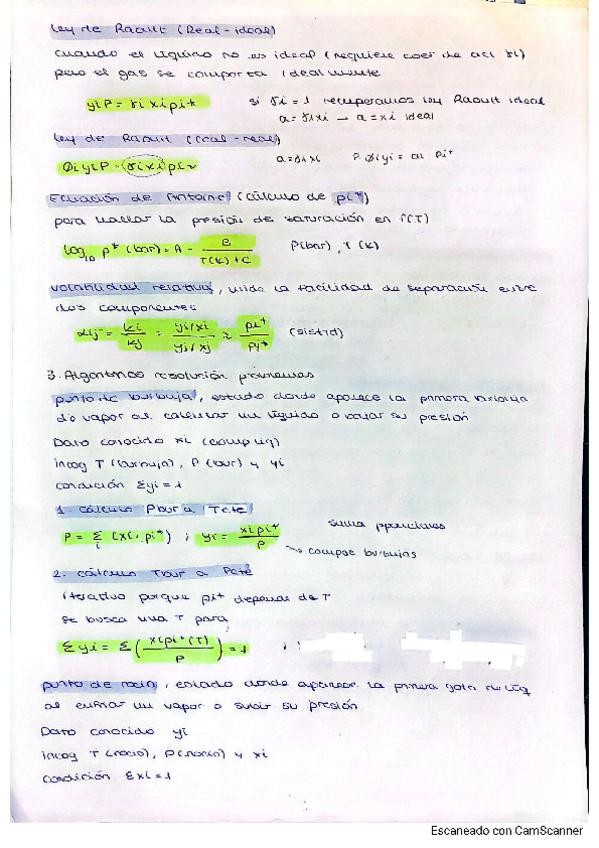 Ley de Raoult (Real-ideal)
cuando el líquido no es ideal (requiere coef de act γi)
pero el gas se comporta idealmente
yiP = γi xi pi*   si γi = 1 recuperamos ley Raoult ideal
a = γixi → a = xi ideal
Ley de Raoult (real-real)
ØiyiP = γixipi*   a = γixi   P Øiyi = ai pi*
Ecuación de Antoine (cálculo de pi*)
para hallar la presión de saturación en f(T)
log10 p* (bar) = A - B / T(K) + C   P(bar), T (K)
volatilidad relativa, mide la facilidad de separación entre
dos componentes
αij = ki/kj = yi/xi / yj/xj ≈ pi*/pj* (sist id)
3. Algoritmos resolución problemas
punto de burbuja, estado donde aparece la primera burbuja
de vapor al calentar un líquido o bajar su presión
Dato conocido xi (comp liq)
Incog T (burbuja), P (bur) y yi
condición Σyi = 1
1. cálculo Pbur a Tcte
P = Σi (xi, pi*) ; yi = xipi*/P   suma pparciales
→ compos burbujas
2. cálculo Tbur a Pcte
iterativo porque pi* depende de T
se busca una T para
Σyi = Σ (xipi*(T) / P) = 1 ;
punto de rocío, estado donde aparece la primera gota de líq
al enfriar un vapor o subir su presión
Dato conocido yi
Incog T (rocío), P (rocío) y xi
Condición Σxi = 1
Escaneado con CamScanner